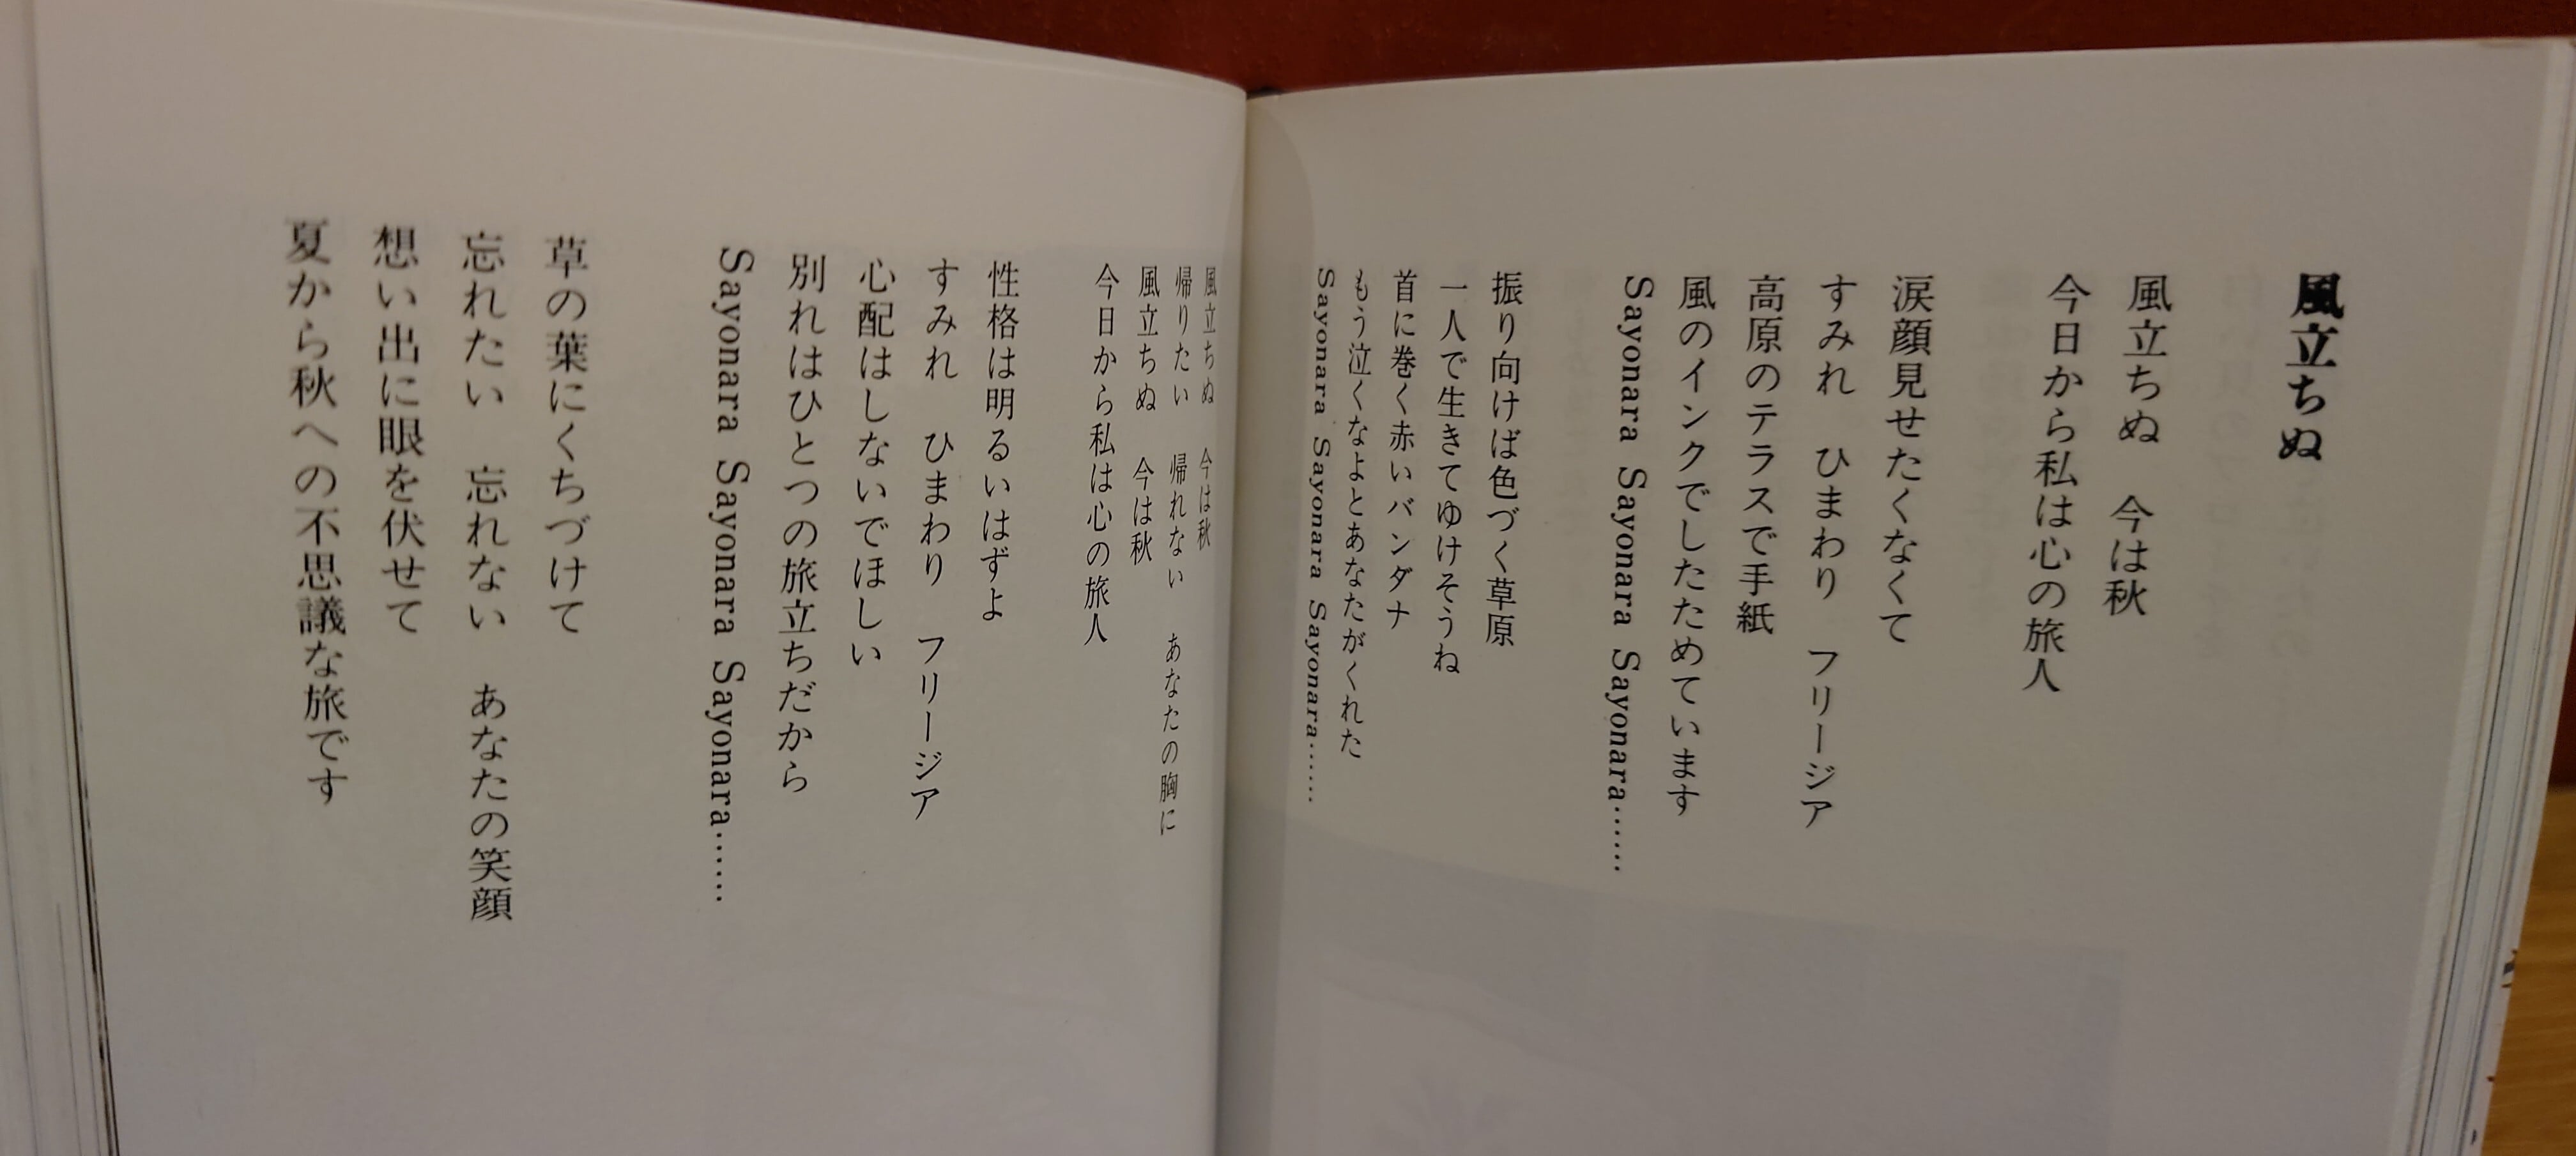 風立ちぬ
風立ちぬ　今は秋
今日から私は心の旅人
涙顔見せたくなくて
すみれ　ひまわり　フリージア
高原のテラスで手紙
風のインクでしたためています
Sayonara Sayonara Sayonara……
振り向けば色づく草原
一人で生きてゆけそうね
首に巻く赤いバンダナ
もう泣くなよとあなたがくれた
Sayonara Sayonara Sayonara……
風立ちぬ　今は秋
帰りたい　帰れない　あなたの胸に
風立ちぬ　今は秋
今日から私は心の旅人
性格は明るいはずよ
すみれ　ひまわり　フリージア
心配はしないでほしい
別れはひとつの旅立ちだから
Sayonara Sayonara Sayonara……
草の葉にくちづけて
忘れたい　忘れない　あなたの笑顔
想い出に眼を伏せて
夏から秋への不思議な旅です